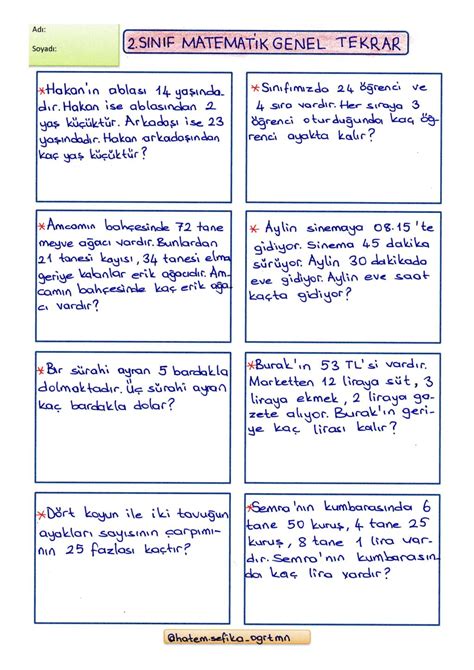 Adı:
Soyadı:
2.SINIF MATEMATİK GENEL TEKRAR
*Hakan'ın ablası 14 yaşında-
dır. Hakan ise ablasından 2
yaş küçüktür. Arkadaşı ise 23
yaşındadır. Hakan arkadaşından
kaç yaş küçüktür?
*Sınıfımızda 24 öğrenci ve
4 sıra vardır. Her sıraya 3
öğrenci oturduğunda kaç öğ-
renci ayakta kalır?
*Amcamın bahçesinde 72 tane
meyve ağacı vardır. Bunlardan
21 tanesi kayısı, 34 tanesi elma
geriye kalanlar erik ağacıdır. Am-
camın bahçesinde kaç erik ağa-
cı vardır?
* Aylin sinemaya 08.15 'te
gidiyor. Sinema 45 dakika
sürüyor. Aylin 30 dakikada
eve gidiyor. Aylin eve saat
kaçta gidiyor?
*Bir sürahi ayran 5 bardakla
dolmaktadır. Üç sürahi ayran
kaç bardakla dolar?
*Burak'ın 53 TL'si vardır.
Marketten 12 liraya süt, 3
liraya ekmek, 2 liraya ga-
zete alıyor. Burak'ın geri-
ye kaç lirası kalır?
*Dört koyun ile iki tavuğun
ayakları sayısının çarpımı-
nın 25 fazlası kaçtır?
*Semra'nın kumbarasında 6
tane 50 kuruş, 4 tane 25
kuruş, 8 tane 1 lira var-
dır. Semra'nın kumbarasın-
da kaç lira vardır?
@hatem.sefika_ogrtmn